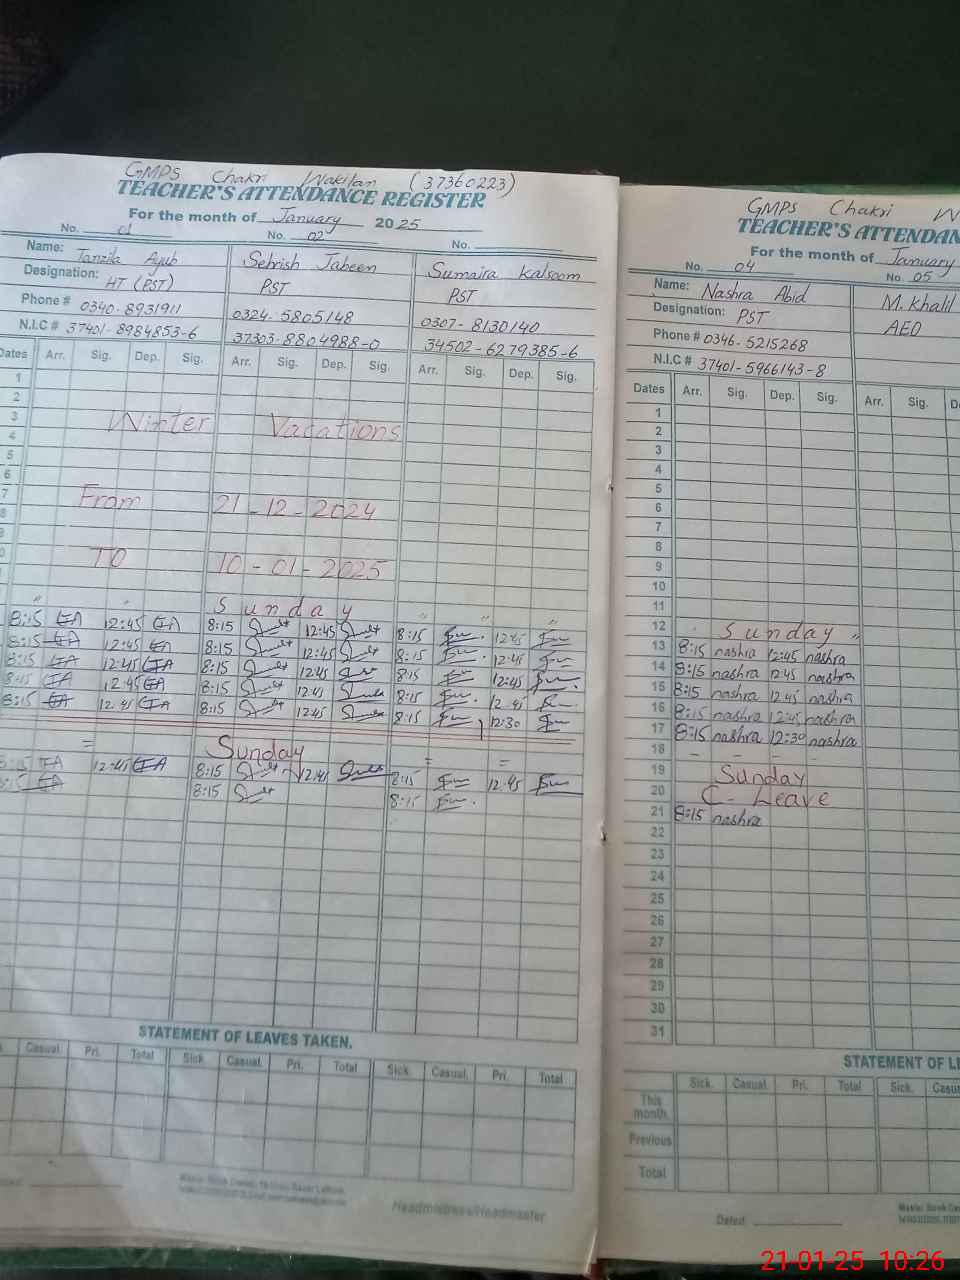 GMPS Chakri Wakilan (37360223)
TEACHER'S ATTENDANCE REGISTER
For the month of January 2025
No. 01 No. 02 No.
Name: Tanzila Ayub Sehrish Jabeen Sumaira Kalsoom
Designation: HT (PST) PST PST
Phone # 0340-8931911 0324-5805148 0307-8130140
N.I.C # 37401-8984853-6 37303-8804988-0 34502-6279385-6
Dates Arr. Sig. Dep. Sig. Arr. Sig. Dep. Sig. Arr. Sig. Dep. Sig.
1
2
3 Winter Vacations
4
5
6
7 From 21-12-2024
8
9
TO 10-01-2025
Sunday
8:15 12:45 8:15 12:45 8:15 12:45
8:15 12:45 8:15 12:45 8:15 12:45
8:15 12:45 8:15 12:45 8:15 12:45
8:15 12:45 8:15 12:45 8:15 12:45
8:15 12:45 8:15 12:45 8:15 12:30
Sunday
8:15 12:45 8:15 12:45 8:15 12:45
8:15 8:15 8:15
STATEMENT OF LEAVES TAKEN.
Casual. Pri. Total Sick. Casual. Pri. Total Sick. Casual. Pri. Total
Headmistress/Headmaster
GMPS Chakri W
TEACHER'S ATTENDAN
For the month of January
No. 04 No. 05
Name: Nashra Abid M. Khalil
Designation: PST AEO
Phone # 0346-5215268
N.I.C # 37401-5966143-8
Dates Arr. Sig. Dep. Sig. Arr. Sig. De
1
2
3
4
5
6
7
8
9
10
11
12 Sunday
13 8:15 nashra 12:45 nashra
14 8:15 nashra 12:45 nashra
15 8:15 nashra 12:45 nashra
16 8:15 nashra 12:45 nashra
17 8:15 nashra 12:30 nashra
18
19 Sunday
20 C-Leave
21 8:15 nashra
22
23
24
25
26
27
28
29
30
31
STATEMENT OF LE
Sick. Casual Pri. Total Sick. Casu
This month.
Previous
Total
Dated
21-01-25 10:26